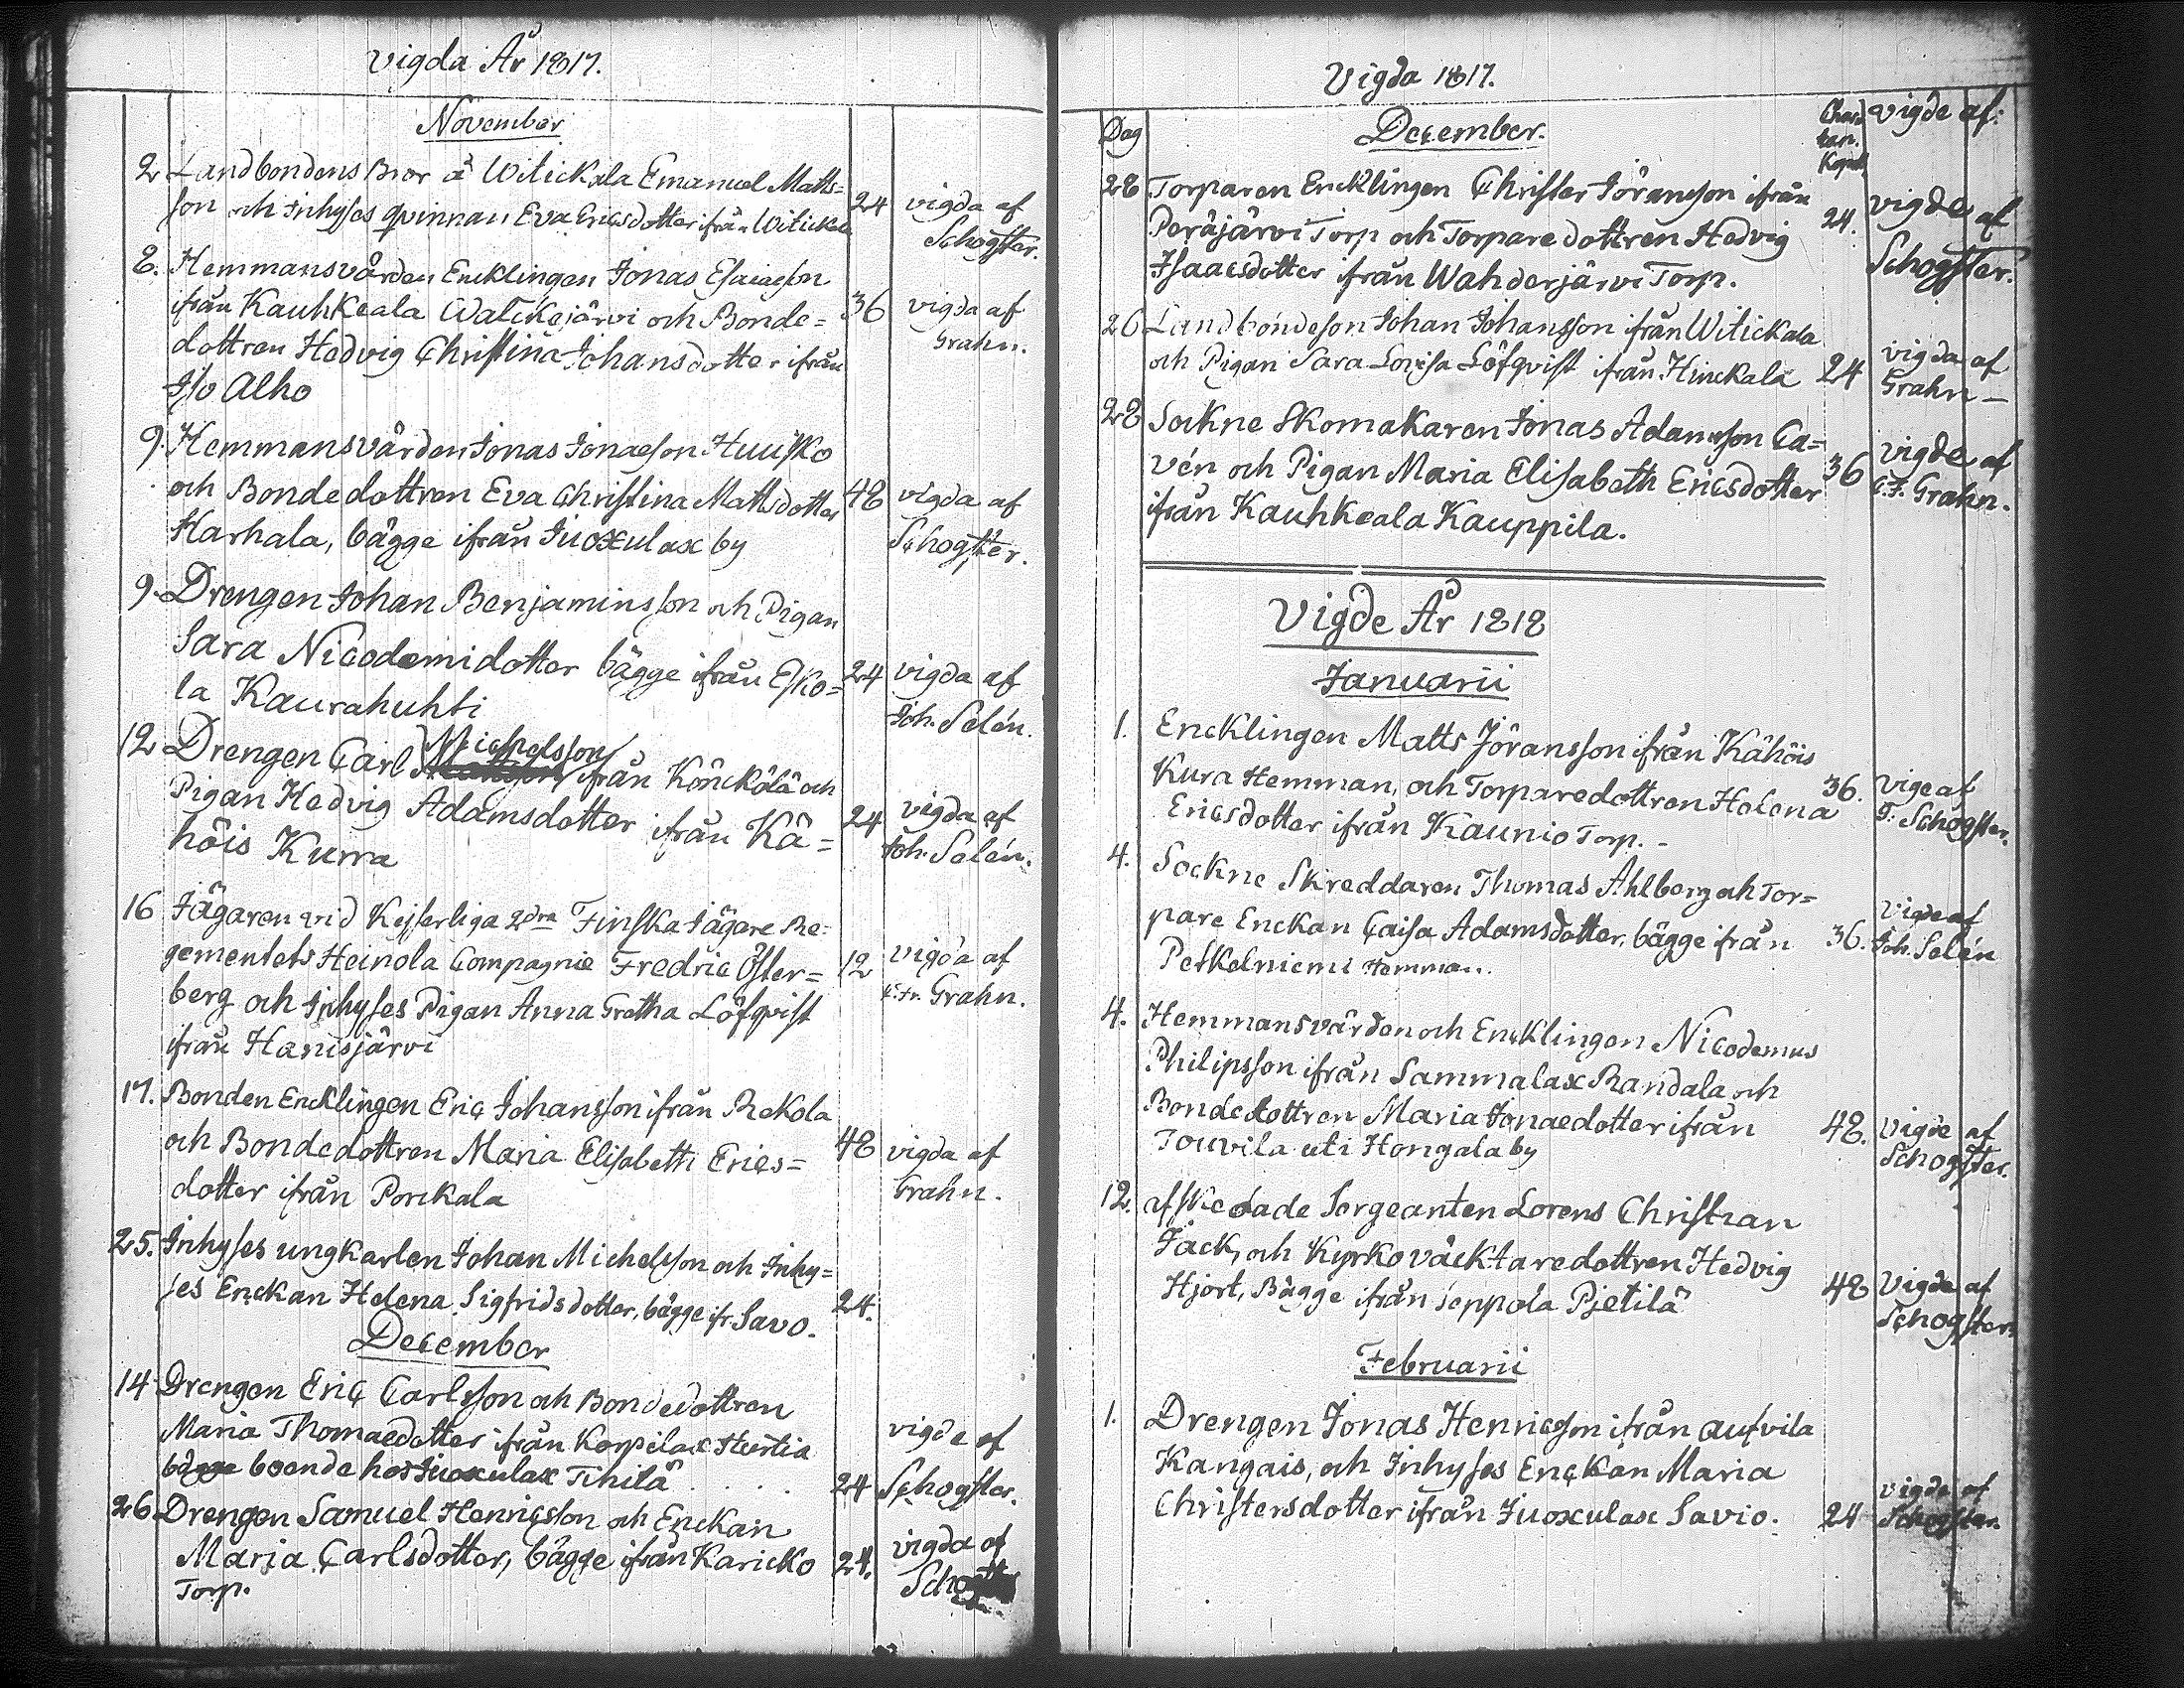 Vigda År 1817.
November
2 Landbondens Bror å Witickala Emanuel Matts=
son och Inhyses qvinnan Eva Ericsdotter ifrån Witickala 24 vigda af
Schogster.
8. Hemmansvärden Encklingen Jonas Esaiæson
ifrån Kauhkeala Walckejärvi och Bonde= 36 vigda af
dottren Hedvig Christina Johansdotter ifrån Grahn.
Iso Alho
9. Hemmansvärden Jonas Jonaeson Huusko
och Bondedottren Eva Christina Mattsdotter 48 vigda af
Harhala, bägge ifrån Iuoxulax by Schogster.
9. Drengen Johan Benjaminsson och Pigan
Sara Nicodemidotter bägge ifrån Esko= 24 vigda af
la Kaurahuhti Joh. Selén.
12 Drengen Carl Michelsson ifrån Könckölä och
Pigan Hedvig Adamsdotter ifrån Kä= 24 vigda af
höis Kurra Joh. Selén.
16 Jägaren vid Kejserliga 2dra Finska Jägare Re=
gementets Heinola Compagnie Fredric Öster= 12 vigda af
berg och Inhyses Pigan Anna Gretha Löfqvist Grahn.
ifrån Hanisjärvi
17. Bonden Encklingen Eric Johansson ifrån Rekola
och Bondedottren Maria Elisabeth Erics= 48 vigda af
dotter ifrån Porckala Grahn.
25. Inhyses ungkarlen Johan Michelsson och Inhy=
ses Enckan Helena Sigfridsdotter, bägge ifr. Savo. 24.
December
14 Drengen Eric Carlsson och Bondedottren
Maria Thomaedotter ifrån Korpilax Hurtia vigde af
bägge boende hos Iuoxulax Tihilä . . . . 24 Schogster.
26 Drengen Samuel Henricsson och Enckan
Maria Carlsdotter, bägge ifrån Karicko 24. vigda af
Torp. Schogster
Vigda 1817.
Dag December. vigde af:
28 Torparen Encklingen Christer Jöransson ifrån
Peräjärvi Torp och Torparedottren Hedvig 24. vigde af
Isaacsdotter ifrån Wahderjärvi Torp. Schogster.
26 Landbondeson Johan Johansson ifrån Witickala
och Pigan Sara Lovisa Löfqvist ifrån Hinckala 24 vigda af
Grahn –
28 Sockne Skomakaren Jonas Adamsson Ca=
vén och Pigan Maria Elisabeth Ericsdotter 36 vigde af
ifrån Kauhkeala Kauppila. Grahn.
Vigde År 1818
Januarii
1. Encklingen Matts Jöransson ifrån Kähöis
Kura Hemman, och Torparedottren Helena 36. vige af
Ericsdotter ifrån Kaunio Torp. – Schogster.
4. Sockne Skreddaren Thomas Ahlberg och Tor=
pare Enckan Caisa Adamsdotter, bägge ifrån 36. Vigde af
Petkelniemi Hemman. Joh. Selén
4. Hemmansvärden och Encklingen Nicodemus
Philipsson ifrån Sammalax Randala och
Bondedottren Maria Jonaedotter ifrån 48. Vigde af
Touvila uti Hongala by Schogster.
12. afskedade Sergeanten Lorens Christian
Jack, och Kyrkoväcktaredottren Hedvig
Hjort, Bägge ifrån Seppola Pjetilä 48 Vigde af
Schogster.
Februarii
1. Drengen Jonas Henricsson ifrån Autvila
Kangais, och Inhyses Enckan Maria
Christersdotter ifrån Iuoxulax Savio. 24 vigda af
Schogster.